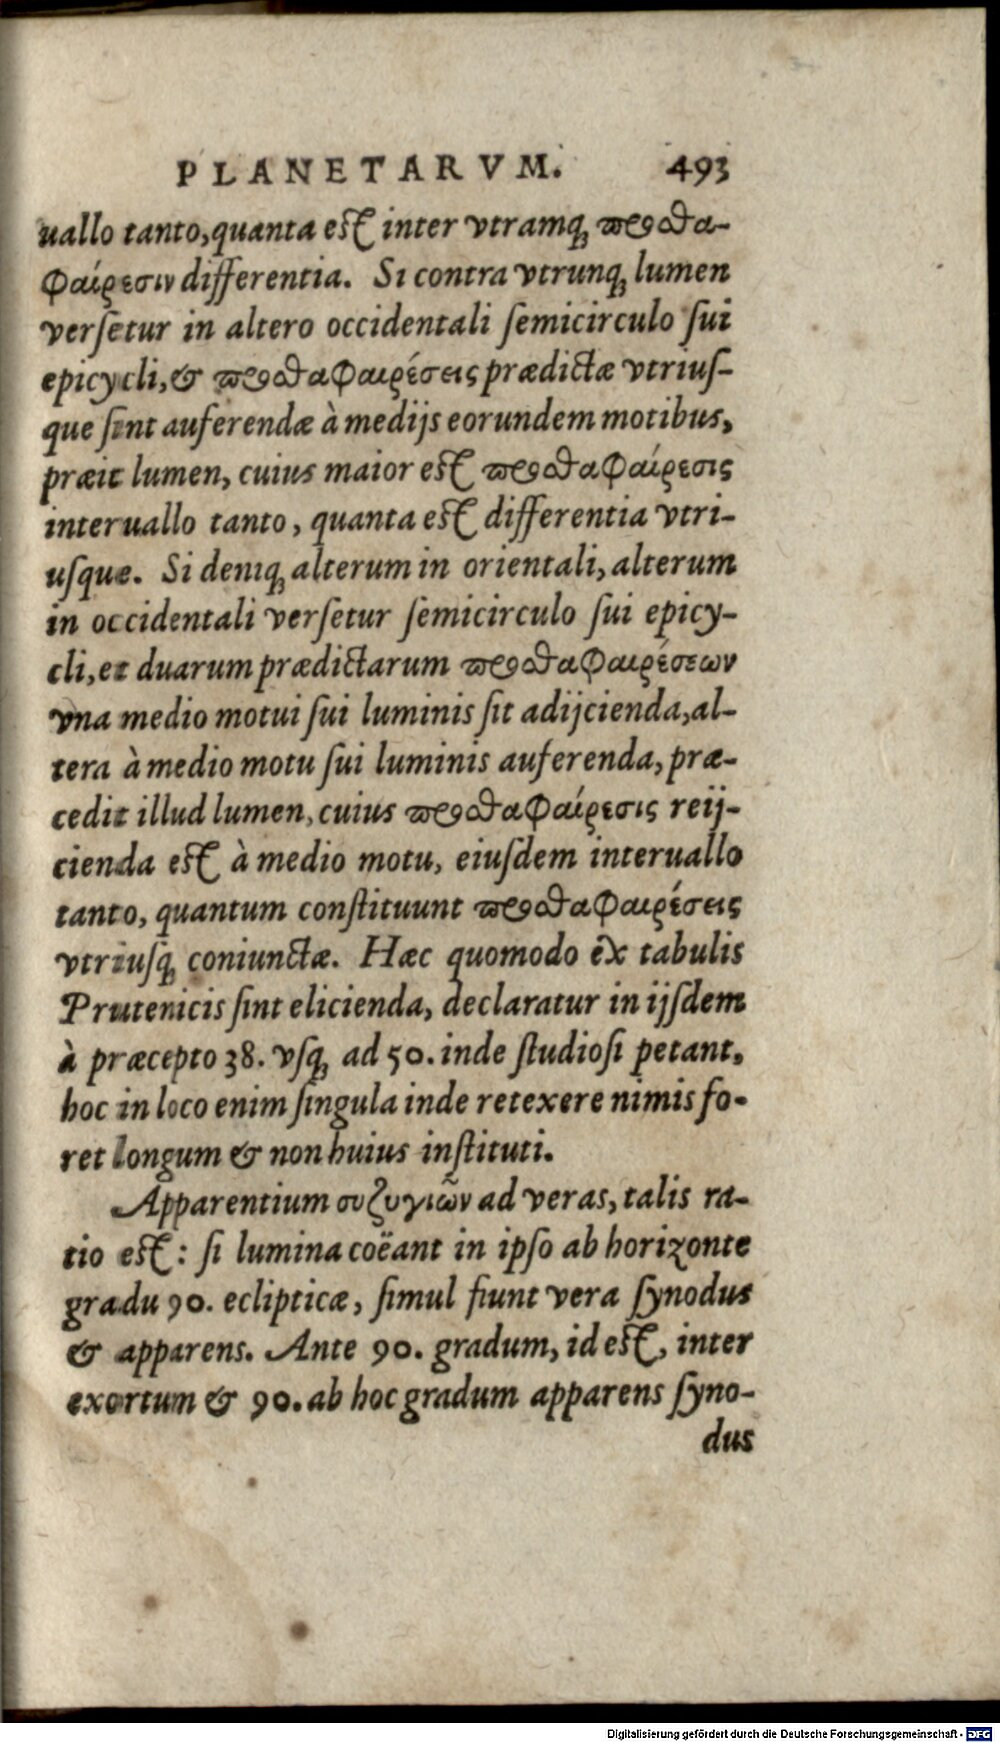 PLANETARVM. 493
uallo tanto, quanta est inter vtramq; προσθα-
φαίρεσιν differentia. Si contra vtrunq; lumen
versetur in altero occidentali semicirculo sui
epicycli, & προσθαφαιρέσεις prædictæ vtrius-
que sint auferendæ à medijs eorundem motibus,
præit lumen, cuius maior est προσθαφαίρεσις
interuallo tanto, quanta est differentia vtri-
usque. Si deniq; alterum in orientali, alterum
in occidentali versetur semicirculo sui epicy-
cli, et duarum prædictarum προσθαφαιρέσεων
vna medio motui sui luminis sit adijcienda, al-
tera à medio motu sui luminis auferenda, præ-
cedit illud lumen, cuius προσθαφαίρεσις reij-
cienda est à medio motu, eiusdem interuallo
tanto, quantum constituunt προσθαφαιρέσεις
vtriusq; coniunctæ. Hæc quomodo ex tabulis
Prutenicis sint elicienda, declaratur in ijsdem
à præcepto 38. vsq; ad 50. inde studiosi petant,
hoc in loco enim singula inde retexere nimis fo-
ret longum & non huius instituti.
Apparentium συζυγιῶν ad veras, talis ra-
tio est: si lumina coëant in ipso ab horizonte
gradu 90. eclipticæ, simul fiunt vera synodus
& apparens. Ante 90. gradum, id est, inter
exortum & 90. ab hoc gradum apparens syno-
dus
Digitalisierung gefördert durch die Deutsche Forschungsgemeinschaft - DFG